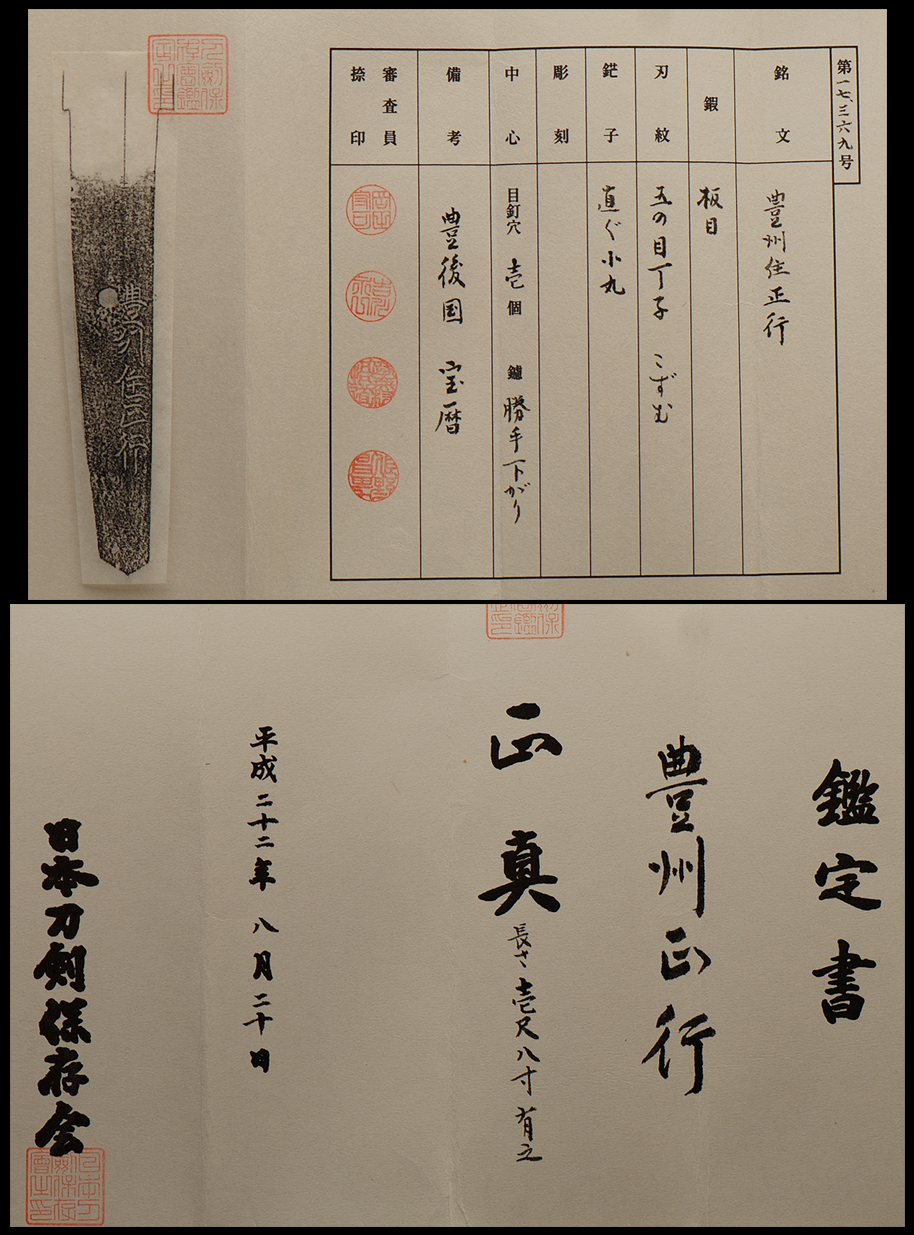 第一七、三六九号
銘文
豊州住正行
鍜
板目
刃紋
五の目丁子 こずむ
鋩子
直ぐ小丸
彫刻
中心
目釘穴 壱個 鑢 勝手下がり
備考
豊後国 宝暦
審査員
捺印
豊州住正行
鑑定書
豊州正行
正真
長さ壱尺八寸有之
平成二十二年八月二十日
日本刀剣保存会